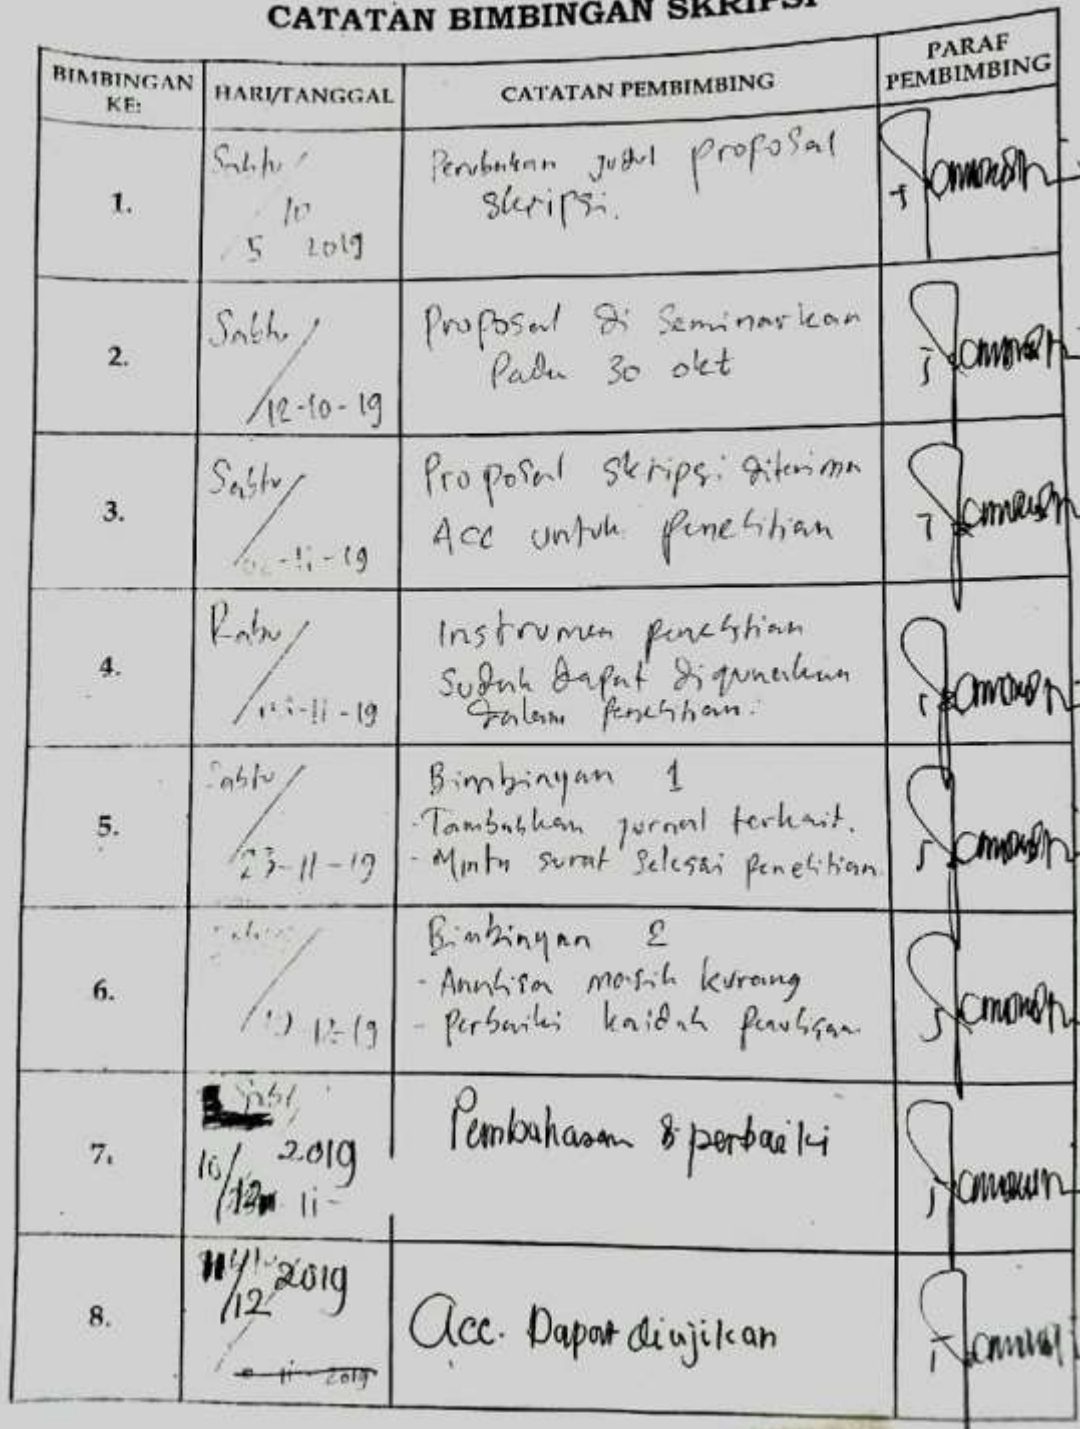 CATATAN BIMBINGAN SKRIPSI
BIMBINGAN KE:
HARI/TANGGAL
CATATAN PEMBIMBING
PARAF PEMBIMBING
1.
Sabtu /
10
5 2019
Perubahan judul proposal
skripsi.
2.
Sabtu /
12-10-19
Proposal di seminarkan
Pada 30 okt
3.
Sabtu /
-11-19
Proposal skripsi diterima
Acc untuk penelitian
4.
Rabu /
-11-19
Instrumen penelitian
sudah dapat digunakan
dalam penelitian.
5.
Sabtu /
23-11-19
Bimbingan 1
- Tambahkan jurnal terkait.
- Minta surat selesai penelitian.
6.
12-19
Bimbingan 2
- Analisa masih kurang
- perbaiki kaidah penulisan
7.
2019
10/
11-
Pembahasan diperbaiki
8.
2019
/12
11 - 2019
Acc. Dapat diujikan